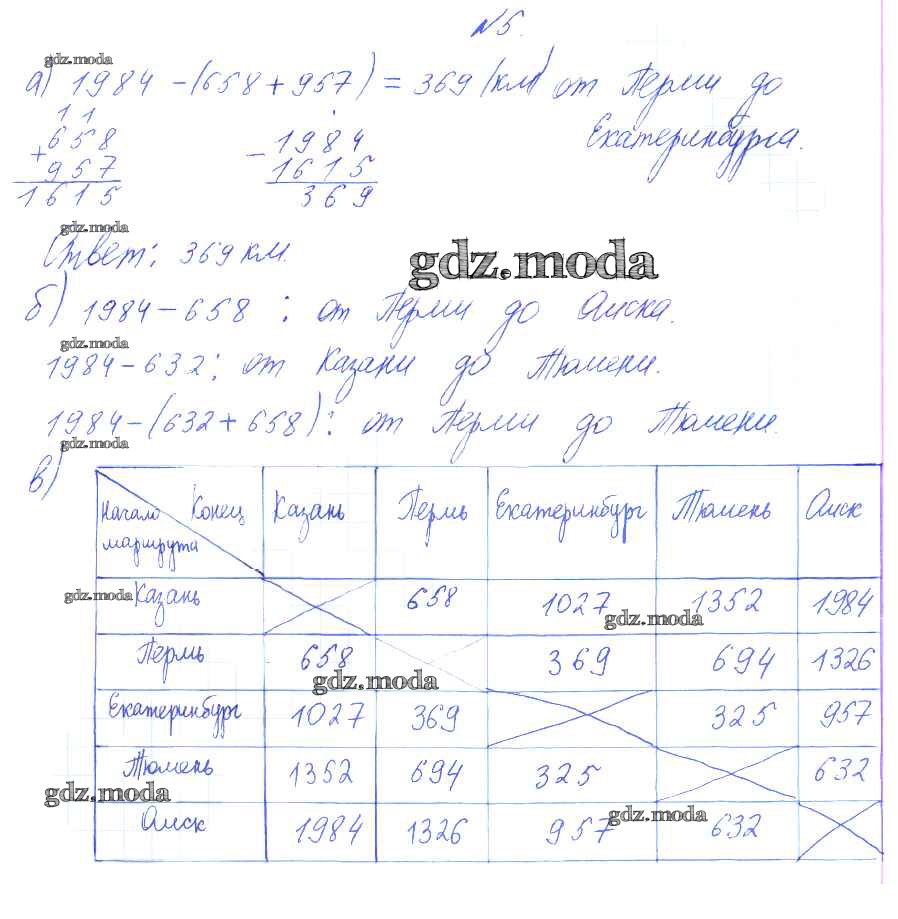 №5.
gdz.moda
а) 1984 - (658 + 957) = 369 (км) от Перми до
Екатеринбурга.
1 1
+ 658
957
1615
- 1984
1615
369
gdz.moda
Ответ: 369 км.
gdz.moda
б) 1984 - 658 : от Перми до Омска.
gdz.moda
1984 - 632 : от Казани до Тюмени.
1984 - (632 + 658) : от Перми до Тюмени.
gdz.moda
в)
Начало маршрута Конец Казань Пермь Екатеринбург Тюмень Омск
gdz.moda
Казань 658 1027 1352 1984
gdz.moda
Пермь 658 369 694 1326
gdz.moda
Екатеринбург 1027 369 325 957
Тюмень 1352 694 325 632
gdz.moda
gdz.moda
Омск 1984 1326 957 632